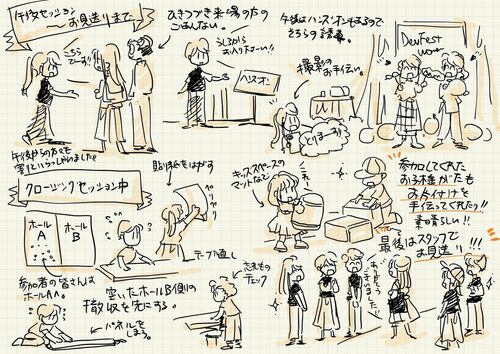 午後セッション
～お見送りまで
こちらでーす!!
午後からの方々も
多くいらっしゃいました!!
ひきつづき来場の方の
ごあんない。
うしろから
お入り下さーい!!
ハンズオン
午後はハンズオンもあるので
そちらの誘導。
撮影の
お手伝い。
とりまーす!!
DevFest
クロージングセッション中
ホール
A
ホール
B
参加者の皆さんは
ホールAへ。
貼り紙をはがす
ペリペリ
テーブル直し
空いたホールB側の
撤収を先にする。
パネルを
しまう。
忘れもの
チェック
キッズスペースの
マットなど
参加してくれた
お子様がたも
お片付けを
手伝ってくれた!!
素晴らしい!!
最後はスタッフで
お見送り!!!
ありがとう
ございました